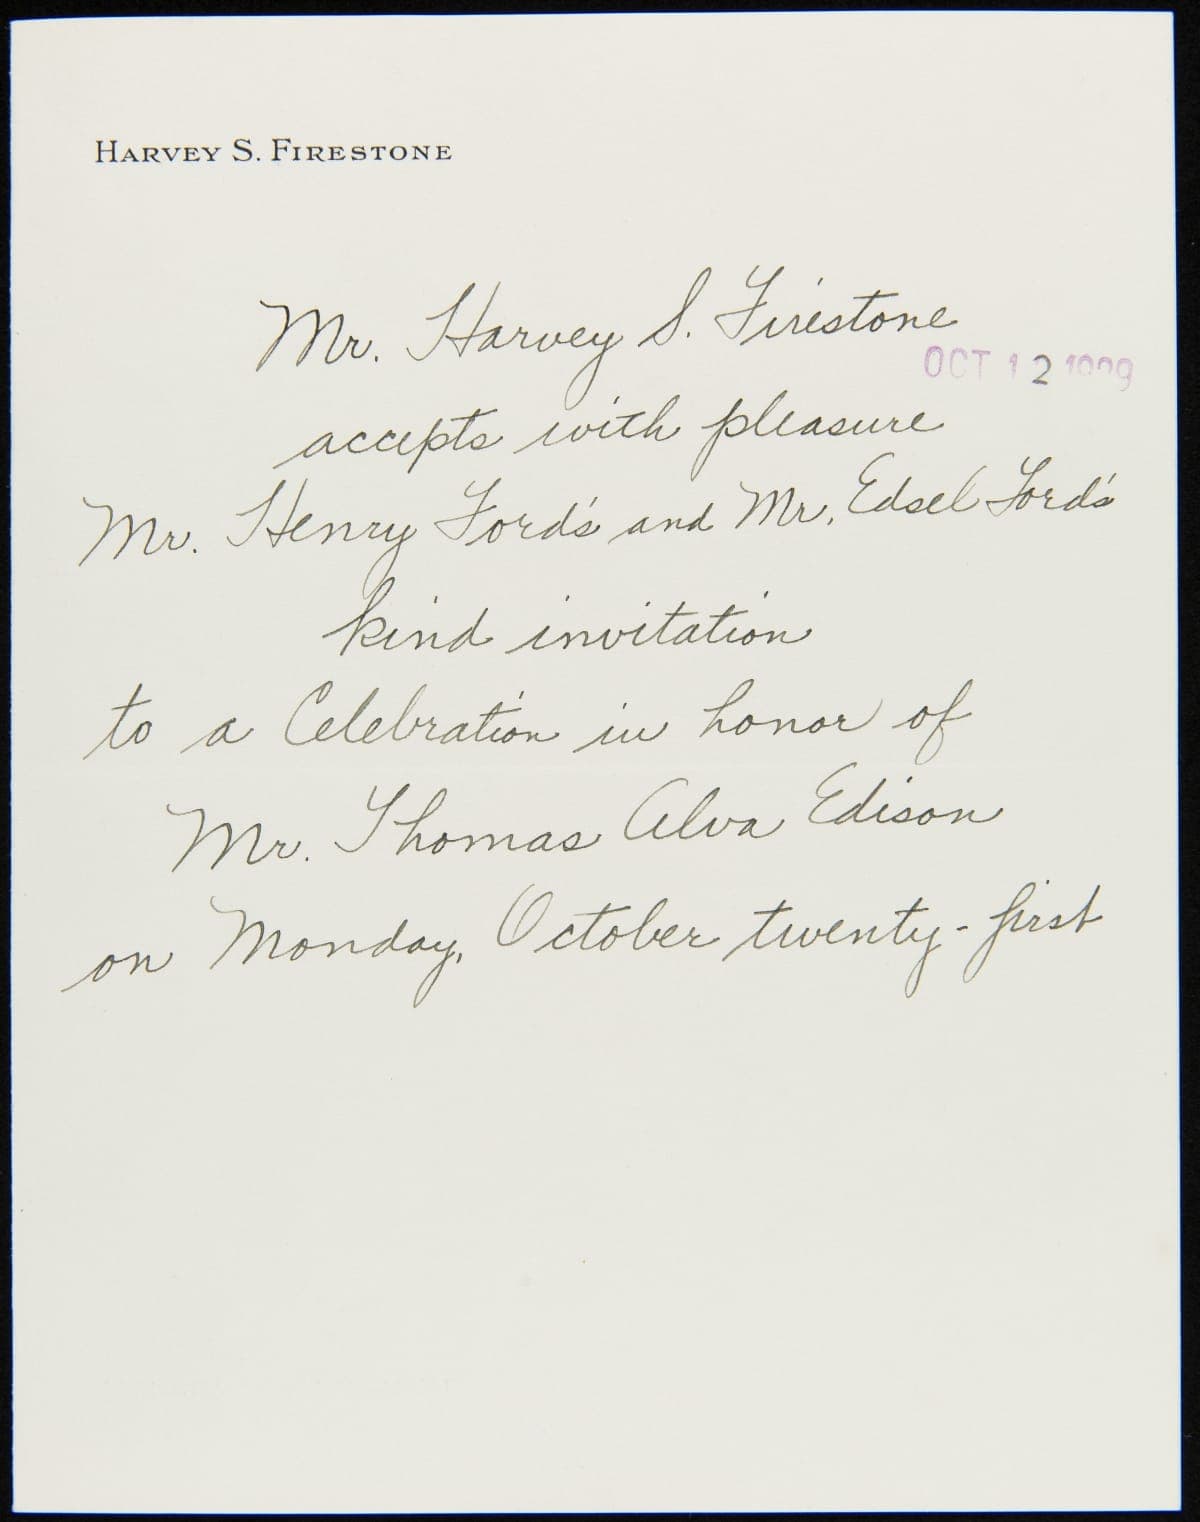 HARVEY S. FIRESTONE
Mr. Harvey S. Firestone
OCT 12 1929
accepts with pleasure
Mr. Henry Ford's and Mr. Edsel Ford's
kind invitation
to a Celebration in honor of
Mr. Thomas Alva Edison
on Monday, October twenty-first